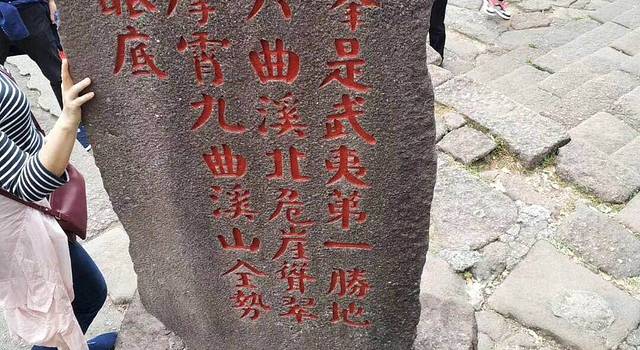 峯是武夷第一勝地
六曲溪北危崖聳翠
摩霄九曲溪山全勢
眼底